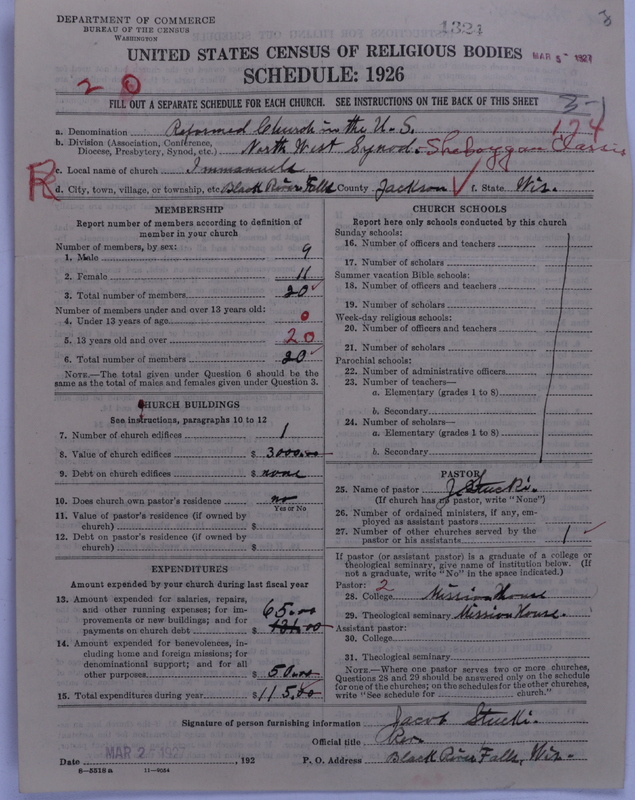 DEPARTMENT OF COMMERCE
BUREAU OF THE CENSUS
WASHINGTON
1324
3
UNITED STATES CENSUS OF RELIGIOUS BODIES
MAR 5 - 1927
SCHEDULE: 1926
2 0
FILL OUT A SEPARATE SCHEDULE FOR EACH CHURCH. SEE INSTRUCTIONS ON THE BACK OF THIS SHEET
3-1
a. Denomination Reformed Church in the U.S. 174
b. Division (Association, Conference, Diocese, Presbytery, Synod, etc.) North West Synod. Sheboygan Classis
c. Local name of church Immanuels
R d. City, town, village, or township, etc. Black River Falls County Jackson f. State Wis.
MEMBERSHIP
Report number of members according to definition of member in your church
Number of members, by sex:
1. Male 9
2. Female 11
3. Total number of members 20
Number of members under and over 13 years old:
4. Under 13 years of age 0
5. 13 years old and over 20
6. Total number of members 20
NOTE.—The total given under Question 6 should be the same as the total of males and females given under Question 3.
CHURCH BUILDINGS
See instructions, paragraphs 10 to 12
7. Number of church edifices 1
8. Value of church edifices $ 3000.00
9. Debt on church edifices $ none
10. Does church own pastor's residence no
Yes or No
11. Value of pastor's residence (if owned by church) $
12. Debt on pastor's residence (if owned by church) $
EXPENDITURES
Amount expended by your church during last fiscal year
13. Amount expended for salaries, repairs, and other running expenses; for improvements or new buildings; and for payments on church debt 65.00
14. Amount expended for benevolences, including home and foreign missions; for denominational support; and for all other purposes $ 50.00
15. Total expenditures during year $ 115.00
CHURCH SCHOOLS
Report here only schools conducted by this church
Sunday schools:
16. Number of officers and teachers
17. Number of scholars
Summer vacation Bible schools:
18. Number of officers and teachers
19. Number of scholars
Week-day religious schools:
20. Number of officers and teachers
21. Number of scholars
Parochial schools:
22. Number of administrative officers
23. Number of teachers—
a. Elementary (grades 1 to 8)
b. Secondary
24. Number of scholars—
a. Elementary (grades 1 to 8)
b. Secondary
PASTOR
25. Name of pastor J. Stucki.
(If church has no pastor, write "None")
26. Number of ordained ministers, if any, employed as assistant pastors
27. Number of other churches served by the pastor or his assistants 1
If pastor (or assistant pastor) is a graduate of a college or theological seminary, give name of institution below. (If not a graduate, write "No" in the space indicated.)
Pastor: 2
28. College Mission House
29. Theological seminary Mission House.
Assistant pastor:
30. College
31. Theological seminary
NOTE.—Where one pastor serves two or more churches, Questions 28 and 29 should be answered only on the schedule for one of the churches; on the schedules for the other churches, write "See schedule for church."
Signature of person furnishing information Jacob Stucki.
Official title Rev.
Date MAR 2 - 1927 , 192 P. O. Address Black River Falls, Wis.
8-5518 a 11-9054